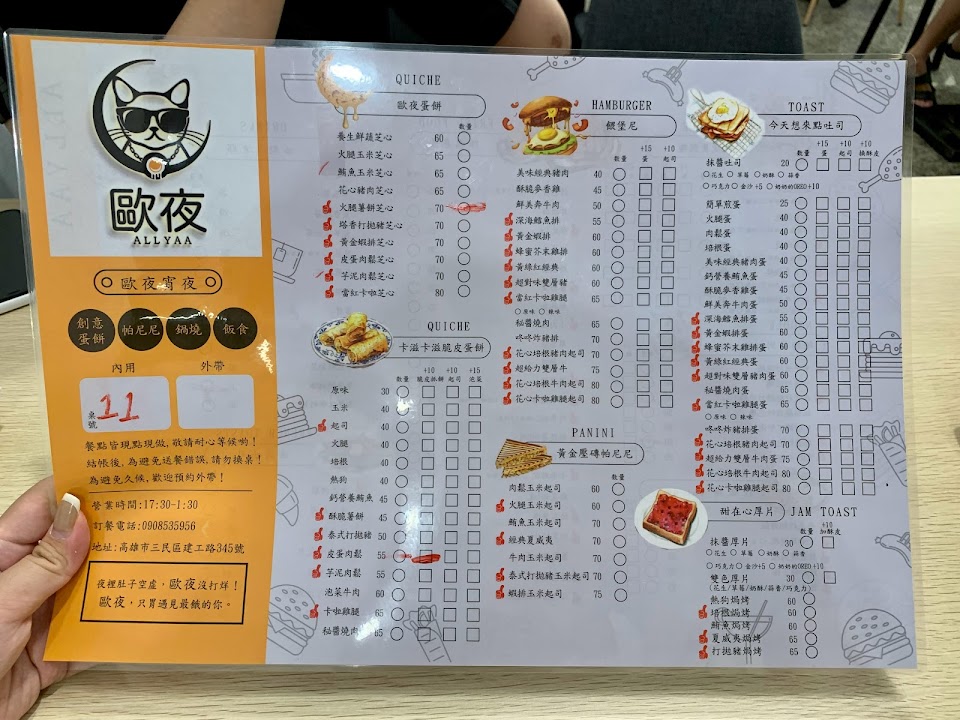 歐夜
ALLYAA
歐夜宵夜
創意蛋餅 帕尼尼 鍋燒 飯食
內用 外帶
桌號 11
餐點皆現點現做,敬請耐心等候喲!
結帳後,為避免送餐錯誤,請勿換桌!
為避免久候,歡迎預約外帶!
營業時間:17:30-1:30
訂餐電話:0908535956
地址:高雄市三民區建工路345號
夜裡肚子空虛,歐夜沒打烊!
歐夜,只胃遇見最餓的你。
QUICHE
歐夜蛋餅
數量
養生鮮蔬芝心 60
火腿玉米芝心 65
鮪魚玉米芝心 65
花心豬肉芝心 65
火腿薯餅芝心 70
塔香打拋豬芝心 70
黃金蝦排芝心 70
皮蛋肉鬆芝心 70
芋泥肉鬆芝心 70
當紅卡啦芝心 80
QUICHE
卡滋卡滋脆皮蛋餅
+10 +10 +15
數量 脆皮抓餅 起司 泡菜
原味 30
玉米 40
起司 40
火腿 40
培根 40
熱狗 40
鈣營養鮪魚 45
酥脆薯餅 45
泰式打拋豬 50
皮蛋肉鬆 55
芋泥肉鬆 55
泡菜牛肉 60
卡啦雞腿 65
秘醬燒肉 65
HAMBURGER
餵堡尼
+15 +10
數量 蛋 起司
美味經典豬肉 40
酥脆麥香雞 45
鮮美奔牛肉 50
深海鱈魚排 55
黃金蝦排 60
蜂蜜芥末雞排 60
黃綠紅經典 60
超對味雙層豬 60
當紅卡啦雞腿 65
原味 辣味
秘醬燒肉 65
咚咚炸豬排 65
花心培根豬肉起司 70
超給力雙層牛 75
花心培根牛肉起司 80
花心卡啦雞腿起司 80
PANINI
黃金壓磚帕尼尼
數量
肉鬆玉米起司 60
火腿玉米起司 60
鮪魚玉米起司 70
經典夏威夷 70
牛肉玉米起司 70
泰式打拋豬玉米起司 70
蝦排玉米起司 75
TOAST
今天想來點吐司
+15 +10 +10
數量 蛋 起司 換酥皮
抹醬吐司 20
花生 草莓 奶酥 蒜香
巧克力 金沙+5 奶奶的OREO+10
簡單煎蛋 25
火腿蛋 40
肉鬆蛋 40
培根蛋 40
美味經典豬肉蛋 40
鈣營養鮪魚蛋 45
酥脆麥香雞蛋 45
鮮美奔牛肉蛋 50
深海鱈魚排蛋 55
黃金蝦排蛋 60
蜂蜜芥末雞排蛋 60
黃綠紅經典蛋 60
超對味雙層豬肉蛋 60
秘醬燒肉蛋 65
當紅卡啦雞腿蛋 65
原味 辣味
咚咚炸豬排蛋 65
花心培根豬肉起司 70
超給力雙層牛肉蛋 75
花心培根牛肉起司 80
花心卡啦雞腿起司 80
甜在心厚片 JAM TOAST
+10
數量 加酥皮
抹醬厚片 30
花生 草莓 奶酥 蒜香
巧克力 金沙+5 奶奶的OREO+10
雙色厚片 30
(花生/草莓/奶酥/蒜香/巧克力)
熱狗焗烤 60
培根焗烤 60
鮪魚焗烤 65
夏威夷焗烤 65
打拋豬焗烤 65